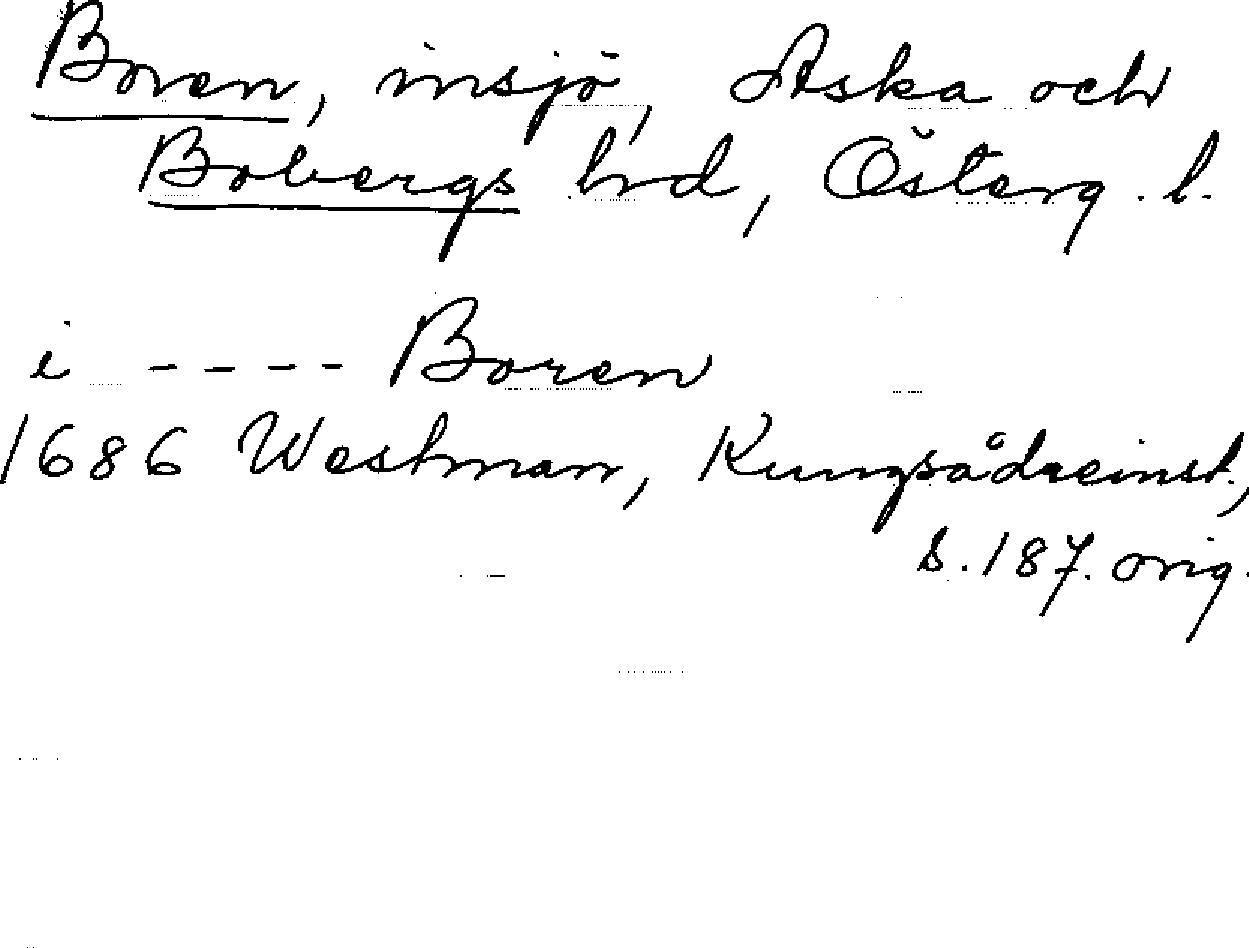 Boren, insjö, Aska och
Bobergs hrd, Österg. l.
i ---- Boren
1686 Westman, Kungsådreinst.,
s. 187. orig.